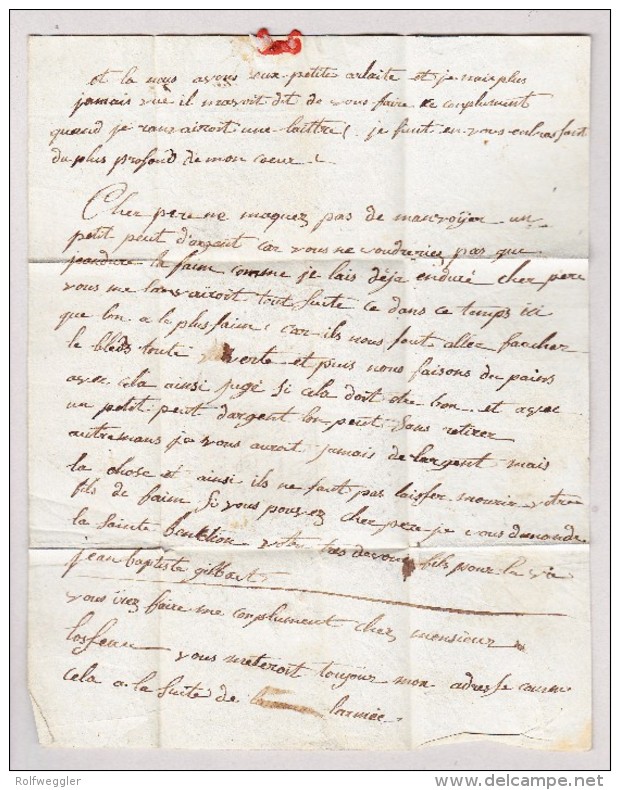 et la nous avons eux petite arlaite et je nais plus
jamais vue il mavoit dit de vous faire ce conplument
quand je vous airoit une laittre je finit en vous enbrassant
du plus profond de mon coeur
Cher pere ne maquez pas de manvoÿer un
petit peut dargent car vous ne voudreriez pas que
jendure la faim comme je lais déja enduré cher pere
vous me lanvairoit tout suite ce dans ce temps ici
que lon a le plus faim car ils nous faut aller faucher
le bleds toute verte et puis nous faisons du pains
avec cela ainsi jugé si cela doit etre bon et avec
un petit peut dargent lon peut sans retirer
autremans je vous auroit jamais de largent mais
la chose et ainsi ils ne faut pas laisser mourir votre
fils de faim si vous pouvez cher pere je vous demande
la Sainte votre tres devoué fils pour la vie
jean baptiste gilbert
vous irez faire me conplument chez monsieur
vous meteroit toujour mon adresse comm
cela a la Suite de larmée
Rolfweggler
delcampe.net